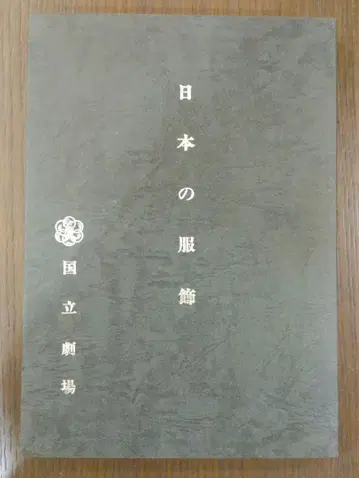 日本の服飾
国立劇場